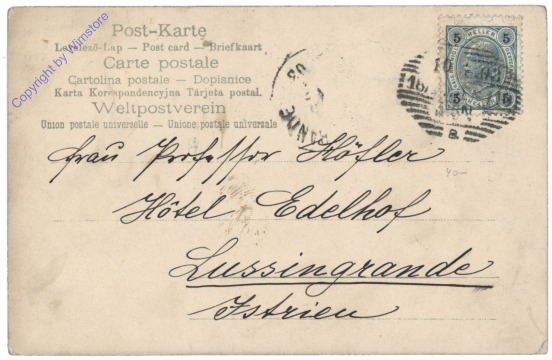 Post-Karte
Levelező-Lap — Post card — Briefkaart
Carte postale
Cartolina postale — Dopisnice
Karta Korespondencyjna Tárjeta postal.
Weltpostverein
Union postale universelle — Unione postale universale
Copyright by Wimstore
5 HELLER 5
5 HELLER 5
RANDE
03
a
Frau Professor Höfler
40-
Hôtel Edelhof
Lussingrande
Istrien